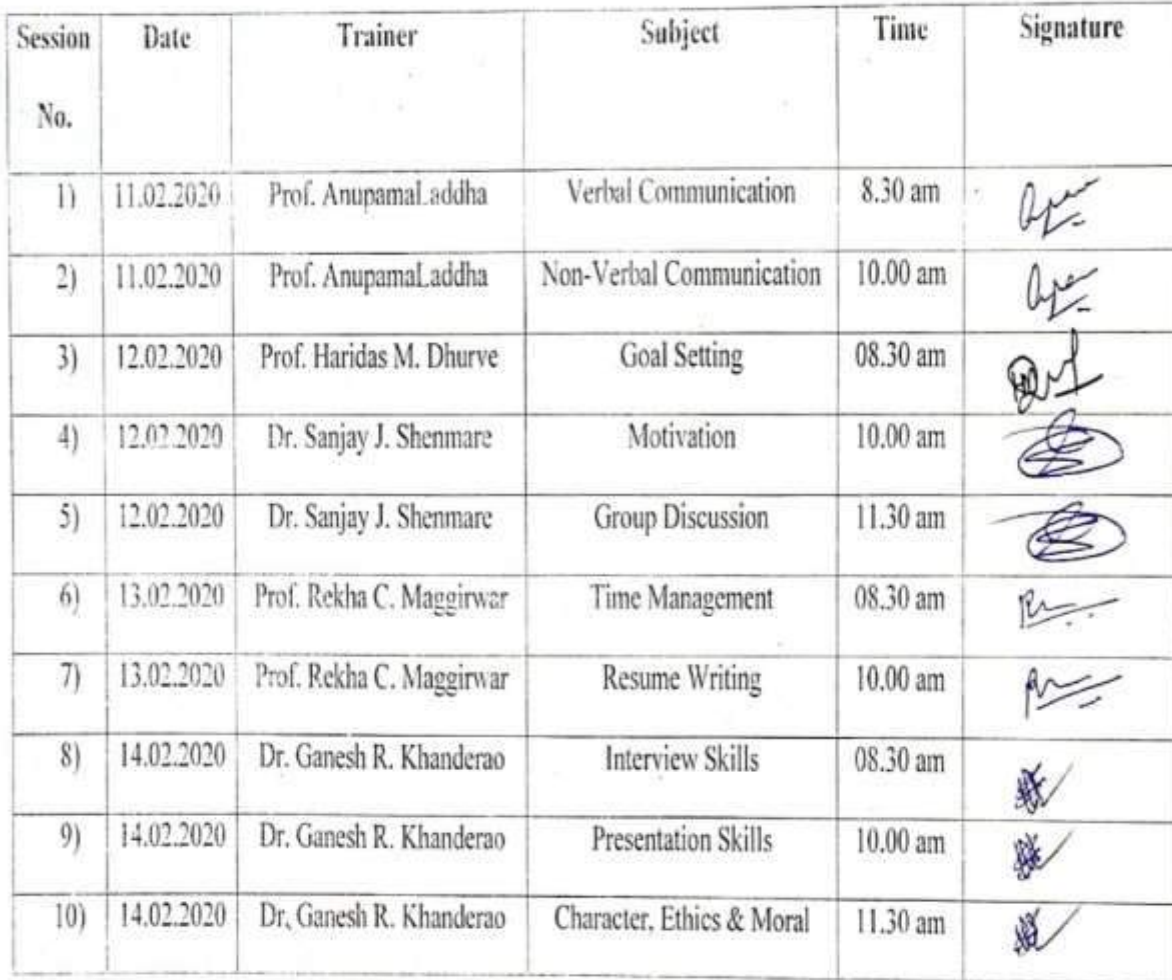 Session No. Date Trainer Subject Time Signature
1) 11.02.2020 Prof. AnupamaLaddha Verbal Communication 8.30 am
2) 11.02.2020 Prof. AnupamaLaddha Non-Verbal Communication 10.00 am
3) 12.02.2020 Prof. Haridas M. Dhurve Goal Setting 08.30 am
4) 12.02.2020 Dr. Sanjay J. Shenmare Motivation 10.00 am
5) 12.02.2020 Dr. Sanjay J. Shenmare Group Discussion 11.30 am
6) 13.02.2020 Prof. Rekha C. Maggirwar Time Management 08.30 am
7) 13.02.2020 Prof. Rekha C. Maggirwar Resume Writing 10.00 am
8) 14.02.2020 Dr. Ganesh R. Khanderao Interview Skills 08.30 am
9) 14.02.2020 Dr. Ganesh R. Khanderao Presentation Skills 10.00 am
10) 14.02.2020 Dr, Ganesh R. Khanderao Character, Ethics & Moral 11.30 am